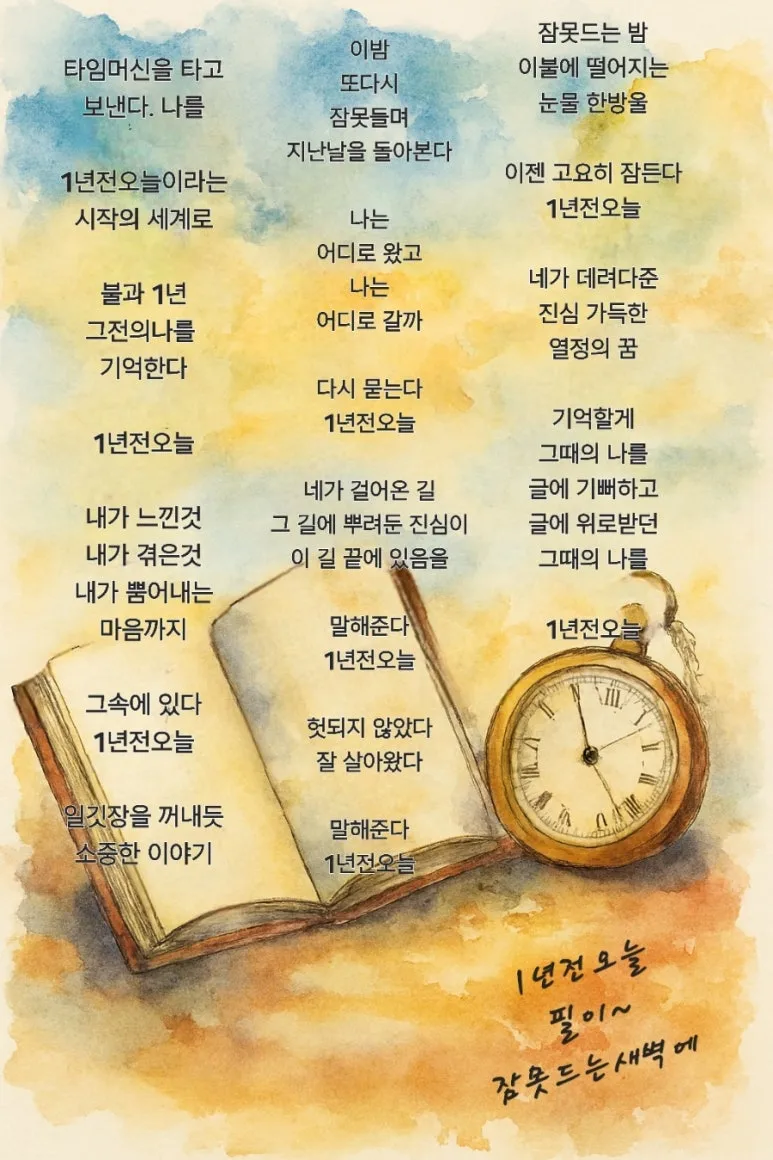 타임머신을 타고
보낸다. 나를
1년전오늘이라는
시작의 세계로
불과 1년
그전의나를
기억한다
1년전오늘
내가 느낀것
내가 겪은것
내가 뿜어내는
마음까지
그속에 있다
1년전오늘
일깃장을 꺼내듯
소중한 이야기
이밤
또다시
잠못들며
지난날을 돌아본다
나는
어디로 왔고
나는
어디로 갈까
다시 묻는다
1년전오늘
네가 걸어온 길
그 길에 뿌려둔 진심이
이 길 끝에 있음을
말해준다
1년전오늘
헛되지 않았다
잘 살아왔다
말해준다
1년전오늘
잠못드는 밤
이불에 떨어지는
눈물 한방울
이젠 고요히 잠든다
1년전오늘
네가 데려다준
진심 가득한
열정의 꿈
기억할게
그때의 나를
글에 기뻐하고
글에 위로받던
그때의 나를
1년전오늘
1년전오늘
필이~
잠못드는새벽에